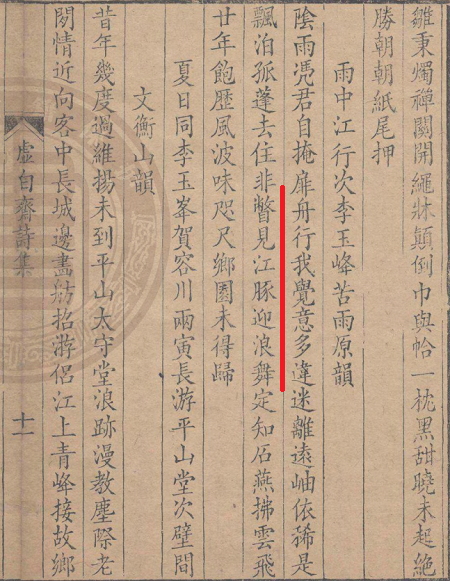 雛秉燭禪關開繩牀顛倒巾與帢一枕黑甜曉未起絕
勝朝朝紙尾押
雨中江行次李玉峰苦雨原韻
陰雨凴君自掩扉舟行我覺意多違迷離遠岫依稀是
飄泊孤蓬去住非瞥見江豚迎浪舞定知石燕拂雲飛
廿年飽歷風波味咫尺鄉園未得歸
夏日同李玉峯賀容川兩寅長游平山堂次壁間
文衡山韻
昔年幾度過維揚未到平山太守堂浪跡漫教塵際老
閒情近向客中長城邊畫舫招游侶江上青峰接故鄉
虛白齋詩集
十一